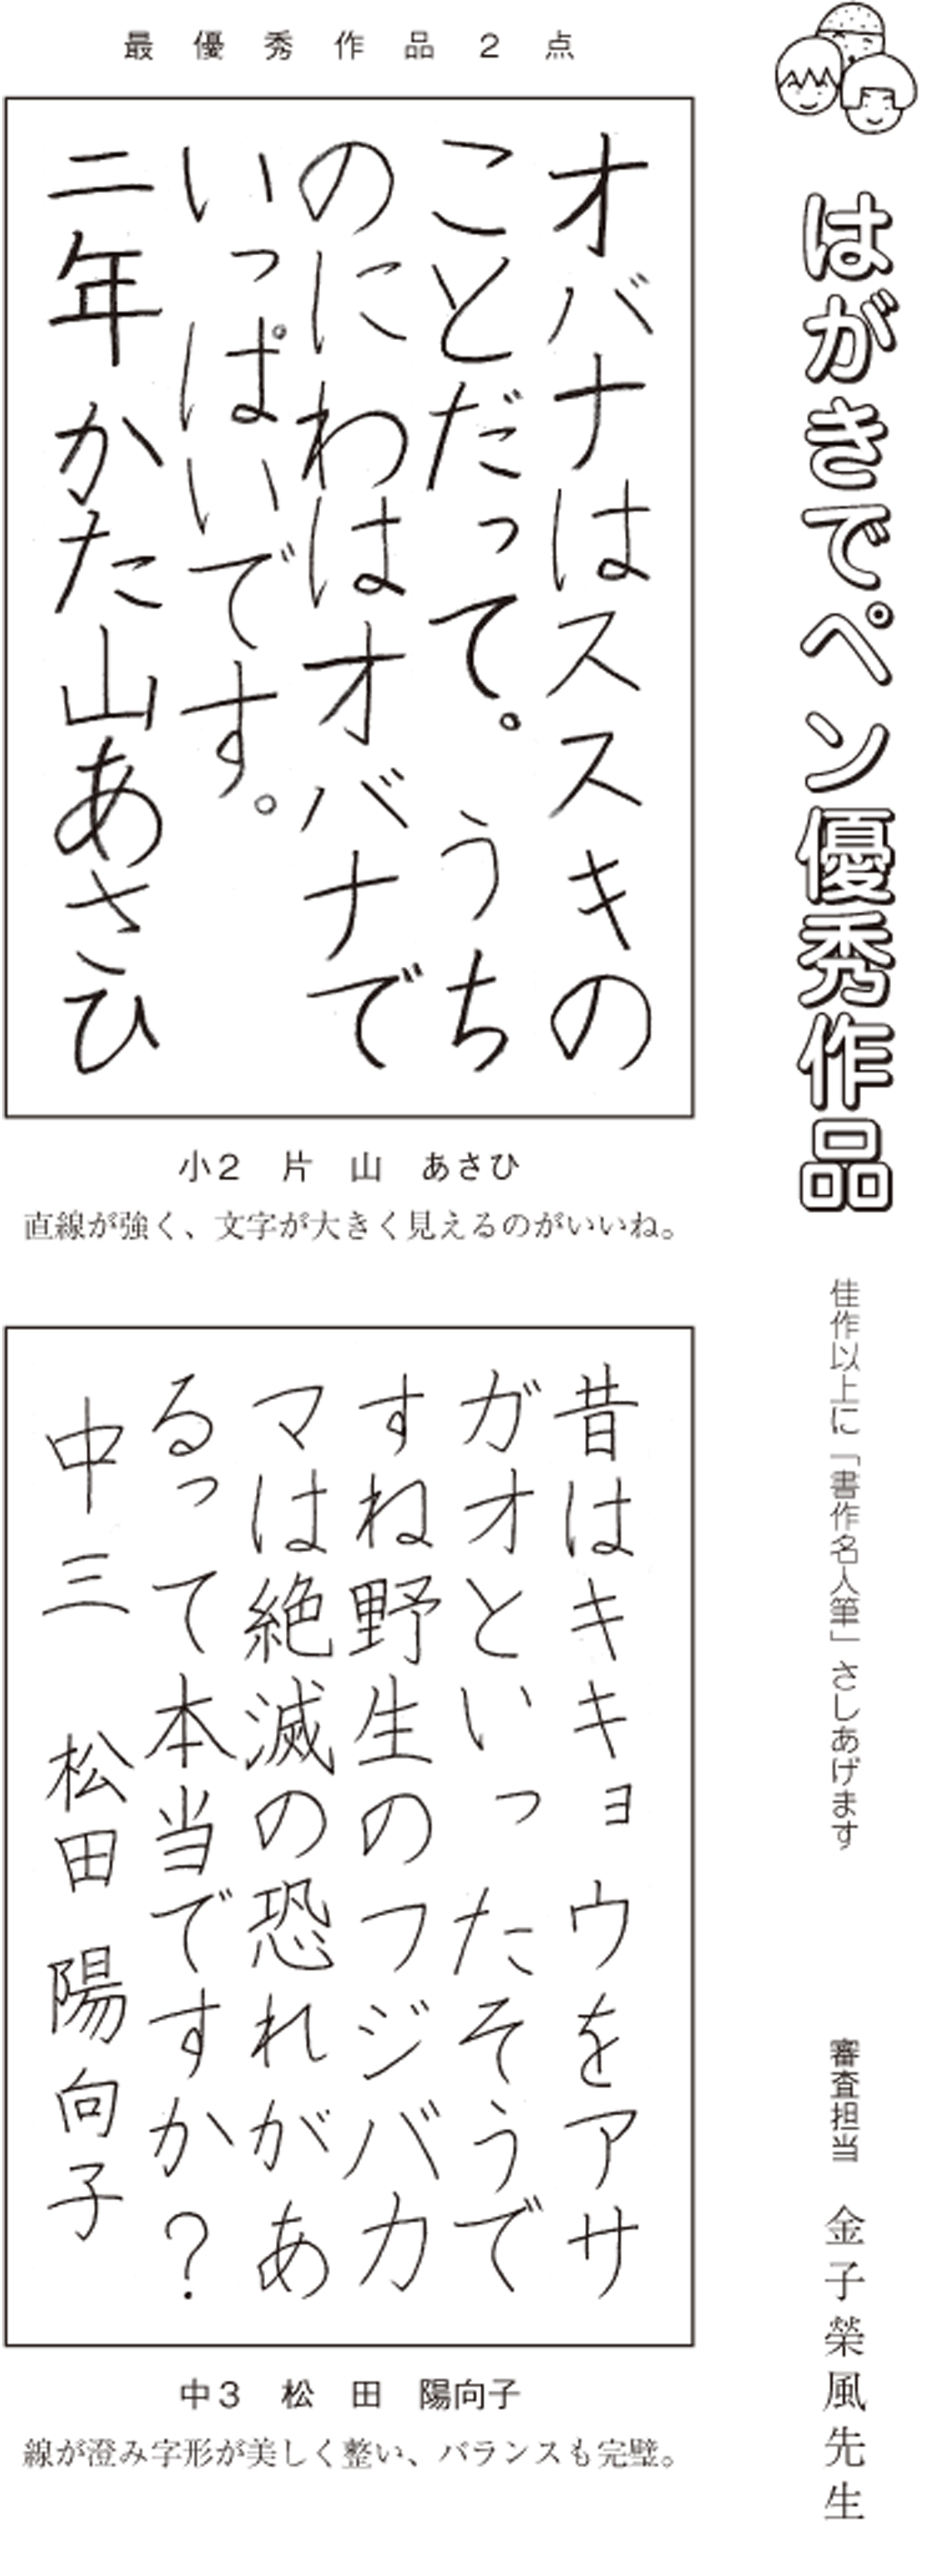 はがきでペン優秀作品
佳作以上に「書作名人筆」さしあげます
審査担当 金子榮風先生
最優秀作品2点
オバナはススキの
ことだって。うち
のにわはオバナで
いっぱいです。
二年かた山あさひ
小2 片山 あさひ
直線が強く、文字が大きく見えるのがいいね。
昔はキキョウをアサ
ガオといったそうで
すね野生のフジバカ
マは絶滅の恐れがあ
るって本当ですか?
中三 松田陽向子
中3 松田 陽向子
線が澄み字形が美しく整い、バランスも完璧。